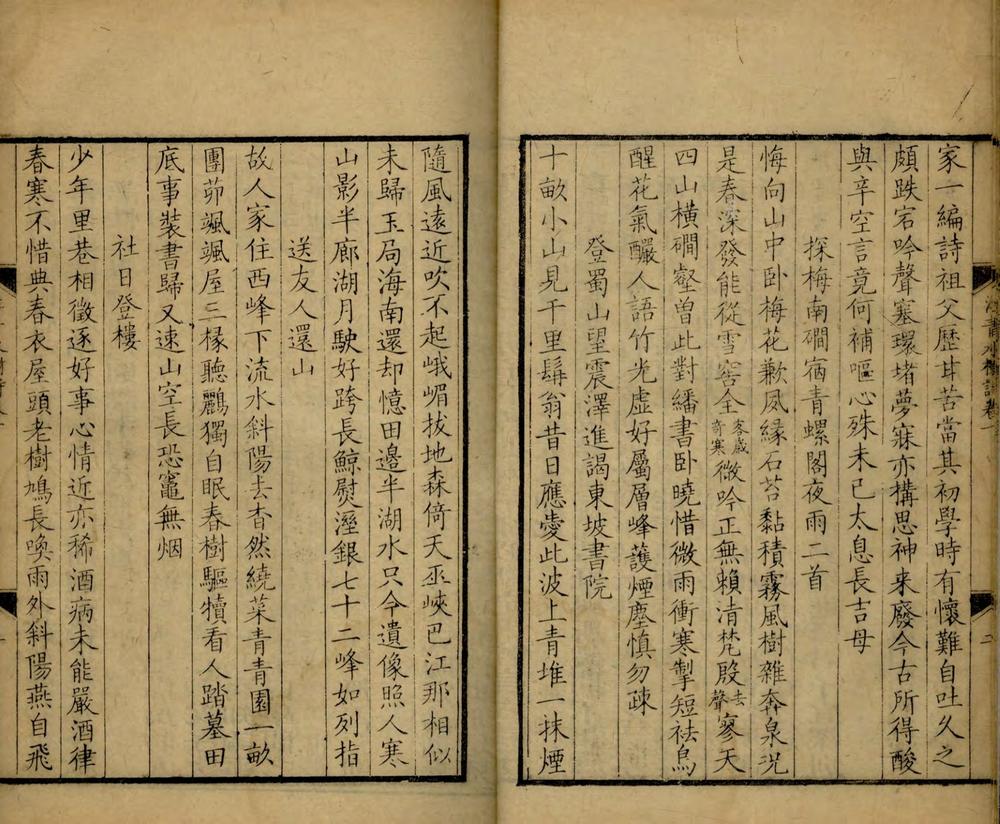 家一編詩祖父歷甘苦當其初學時有懷難自吐久之
頗跌宕吟聲塞環堵夢寐亦構思神来廢今古所得酸
與辛空言竟何補嘔心殊未已太息長吉母
探梅南磵宿青螺閣夜雨二首
悔向山中卧梅花歉夙緣石苔黏積霧風樹雜奔泉况
是春深發能從雪窖全客歲奇寒微吟正無賴清梵殷去聲寥天
四山橫磵壑曽此對繙書卧曉惜微雨衝寒掣短袪鳥
醒花氣釅人語竹光虛好屬層峰護煙塵慎勿疎
登蜀山望震澤進謁東坡書院
十畝小山見千里髯翁昔日應愛此波上青堆一抹煙
隨風遠近吹不起峨嵋拔地森倚天巫峽巴江那相似
未歸玉局海南還却憶田邉半湖水只今遺像照人寒
山影半廊湖月駛好跨長鯨熨溼銀七十二峰如列指
送友人還山
故人家住西峰下流水斜陽去杳然繞菜青青園一畝
團茆颯颯屋三椽聽鸝獨自眠春樹驅犢看人踏墓田
底事裝書歸又速山空長恐竈無烟
社日登樓
少年里巷相徵逐好事心情近亦稀酒病未能嚴酒律
春寒不惜典春衣屋頭老樹鳩長喚雨外斜陽燕自飛